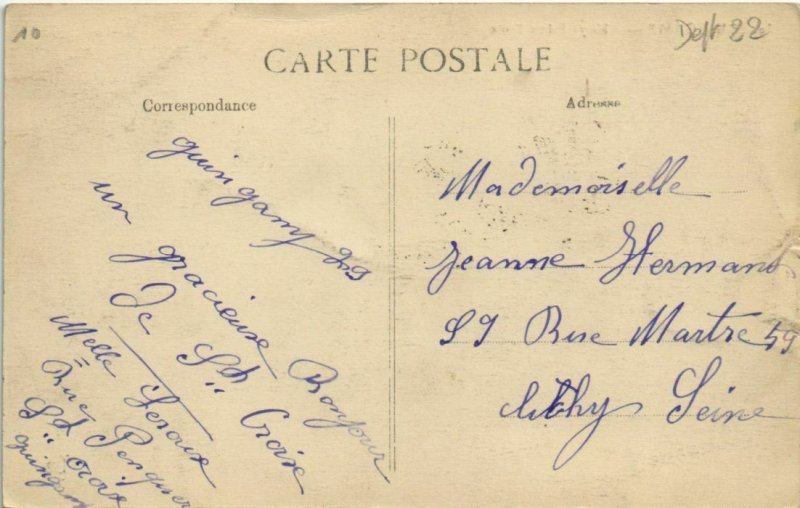 10
Dept 22
CARTE POSTALE
Correspondance
Adresse
guingamp 29
un gracieuse Bonjour
De Ste Croix
Melle Leroux
Rue
Ste Croix
guingamp
Mademoiselle
Jeanne Hermans
59 Rue Martre 59
clichy Seine